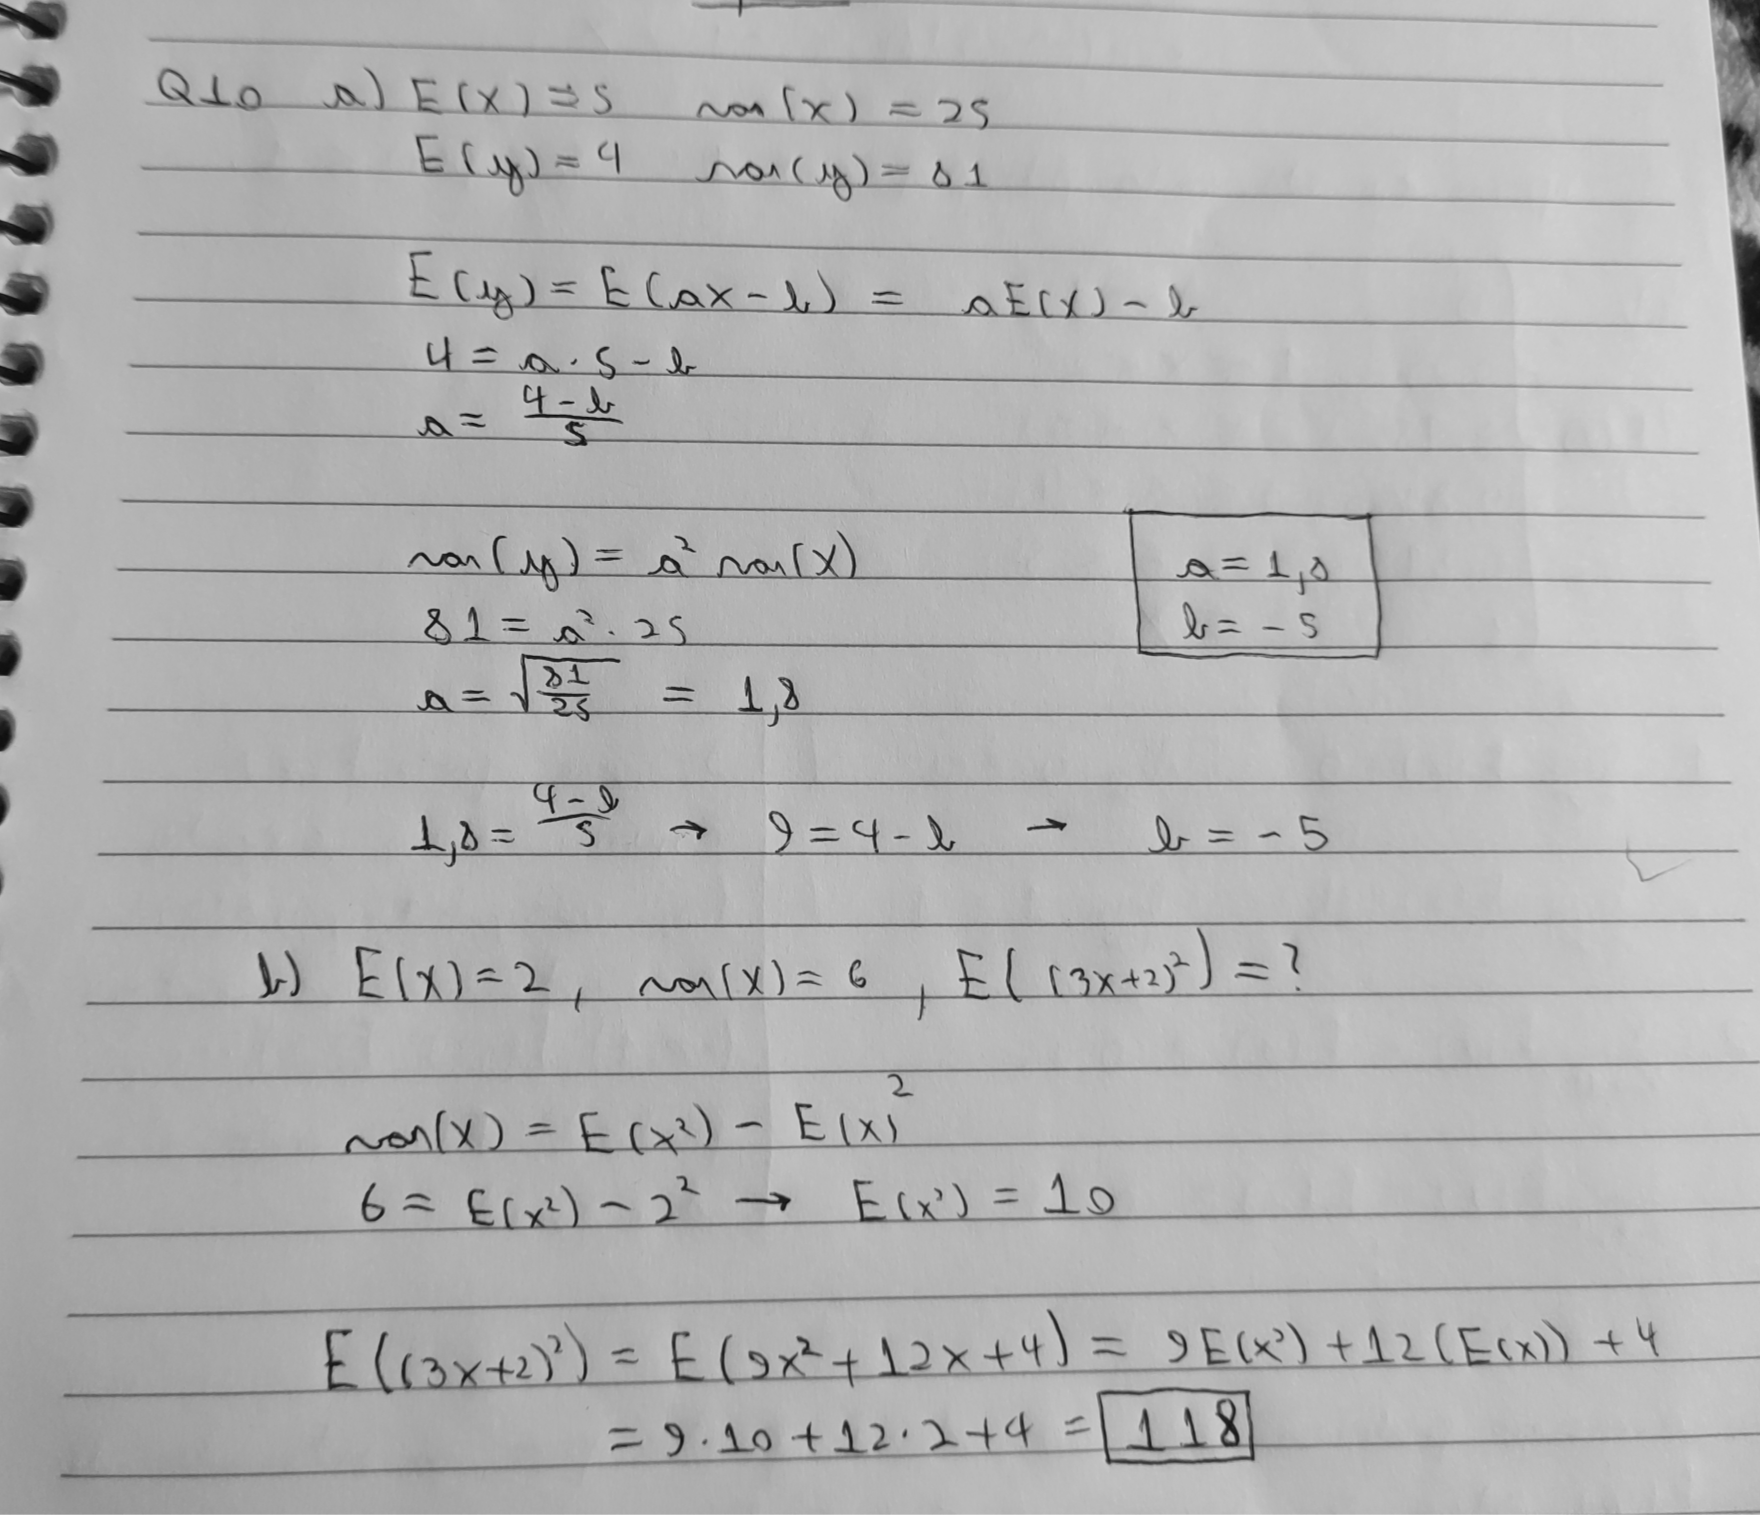 Q10 a) E(X) = 5 var(X) = 25
E(y) = 4 var(y) = 81
E(y) = E(ax - b) = aE(X) - b
4 = a · 5 - b
a = (4 - b)/5
var(y) = a² var(X)
81 = a² · 25
a = √(81/25) = 1,8
a = 1,8
b = -5
1,8 = (4 - b)/5 → 9 = 4 - b → b = -5
b) E(X) = 2, var(X) = 6, E((3x+2)²) = ?
var(X) = E(x²) - E(x)²
6 = E(x²) - 2² → E(x²) = 10
E((3x+2)²) = E(9x² + 12x + 4) = 9E(x²) + 12(E(x)) + 4
= 9·10 + 12·2 + 4 = 118